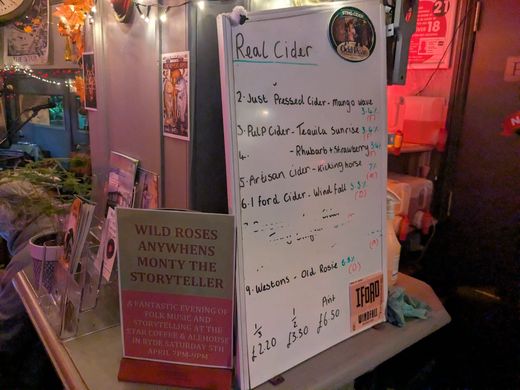 Real Cider
2. Just Pressed Cider - Mango wave
3.4%
(F)
3. Pulp Cider - Tequila Sunrise 3.4%
(F)
4. - Rhubarb + Strawberry 3.4%
5. Artisan Cider - Kicking horse 7%
(M)
6. Iford Cider - Wind Fall 5.5%
(D)
(M)
9. Westons - Old Rosie 6.8%
(D)
1/3 1/2 Pint
£2.20 £3.50 £6.50
IFORD
WINDFALL
WILD ROSES
ANYWHENS
MONTY THE
STORYTELLER
A FANTASTIC EVENING OF
FOLK MUSIC AND
STORYTELLING AT THE
STAR COFFEE & ALEHOUSE
IN RYDE SATURDAY 5TH
APRIL 7PM-9PM
Old Rosie
21
UNDER
18